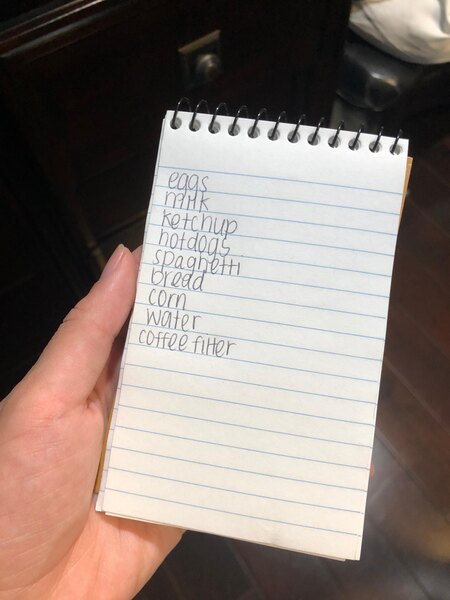 eggs
milk
ketchup
hotdogs
spaghetti
bread
corn
water
coffee filter